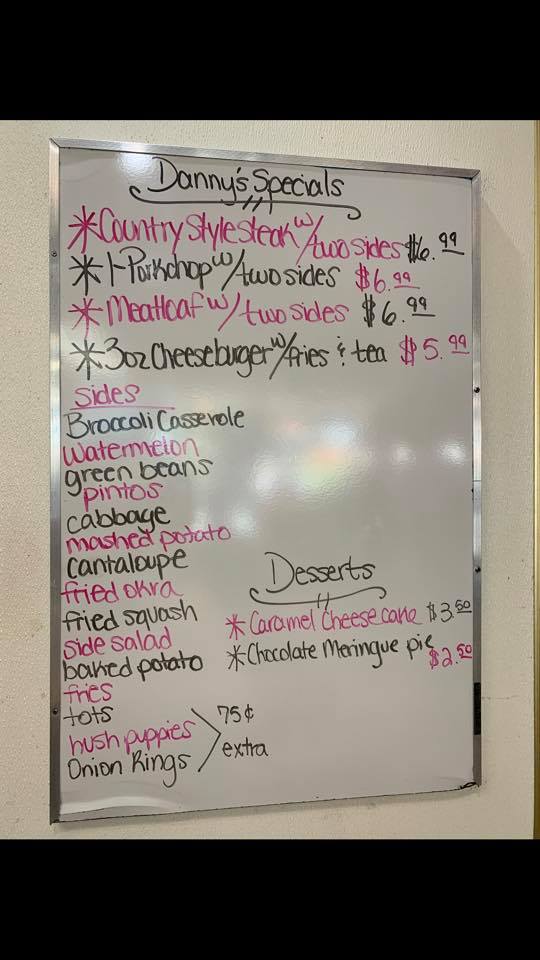 Danny's Specials
*Country Style steak w/ two sides $6.99
*1-Porkchop w/ two sides $6.99
*Meatloaf w/ two sides $6.99
*3oz Cheeseburger w/ fries & tea $5.99
Sides
Broccoli Casserole
Watermelon
green beans
pintos
cabbage
mashed potato
Cantaloupe
fried okra
fried squash
side salad
baked potato
fries
tots
hush puppies
Onion Rings
75¢
extra
Desserts
*Caramel Cheesecake $3.50
*Chocolate Meringue pie $2.50